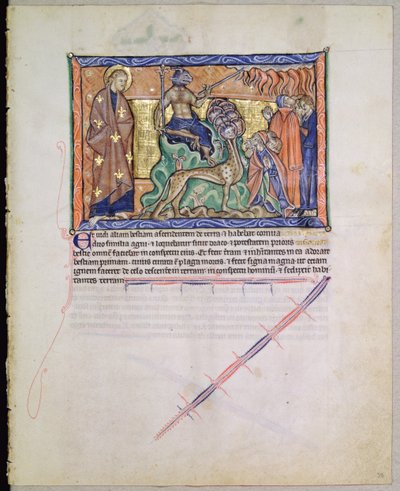 Et vidi aliam bestiam ascendentem de terra ⁊ habebat cornua
duo similia agni ⁊ loquebatur sicut draco ⁊ potestatem prioris
bestie omnem faciebat in conspectu eius Et fecit terram ⁊ inhabitantes in ea adorare
bestiam primam cuius curata est plaga mortis ⁊ fecit signa magna ut etiam
ignem faceret de celo descendere in terram in conspectu hominum ⁊ seduxit habi
tantes terram